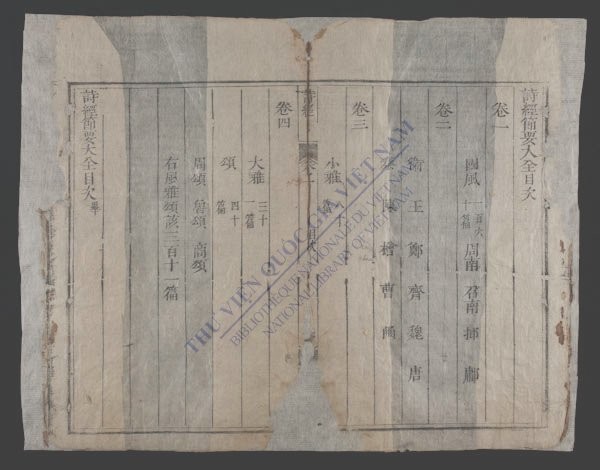 詩經節要大全目次
卷一
國風 一百六十篇 周南 召南 邶 鄘
卷二
衛 王 鄭 齊 魏 唐
陳 檜 曹 豳
卷三
小雅
詩經
卷之一
目次
卷四
大雅 三十一篇
頌 四十篇
周頌 魯頌 商頌
右風雅頌該三百十一篇
詩經節要大全目次畢
THƯ VIỆN QUỐC GIA VIỆT NAM
BIBLIOTHÈQUE NATIONALE DU VIETNAM
NATIONAL LIBRARY OF VIETNAM